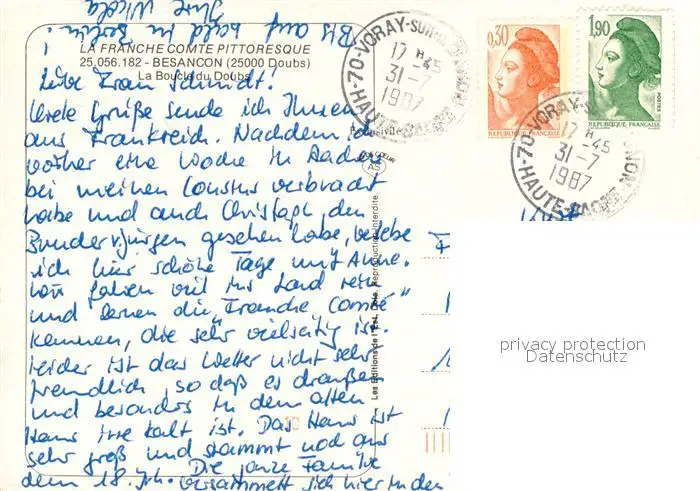 Bis auf bald in Berlin!
Ihre Nicola
LA FRANCHE COMTE PITTORESQUE
25.056.182 - BESANCON (25000 Doubs)
La Boucle du Doubs
Liebe Frau Schmidt!
Viele Grüße sende ich Ihnen
aus Frankreich. Nachdem ich
vorher eine Woche in Aachen
bei meinen Cousins verbracht
habe und auch Christoph, den
gesehen habe, verlebe
ich hier schöne Tage mit Anne.
Wir fahren viel ins Land rein
und lernen die „Franche Comté"
kennen, die sehr vielseitig ist.
Leider ist das Wetter nicht sehr
freundlich, so daß es draußen
und besonders in dem alten
Haus irre kalt ist. Das Haus ist
sehr groß und stammt noch aus
dem 18. Jh. Die ganze Familie
versammelt sich hier in den
Les Editions de l'Est
Reproduction interdite
70-VORAY-SUR-L'OGNON
17 H 45
31-7
1987
HAUTE-SAONE
0,30
REPUBLIQUE FRANCAISE
1,90
POSTES
REPUBLIQUE FRANCAISE
70-VORAY
17 H 45
31-7
1987
HAUTE-SAONE
privacy protection
Datenschutz